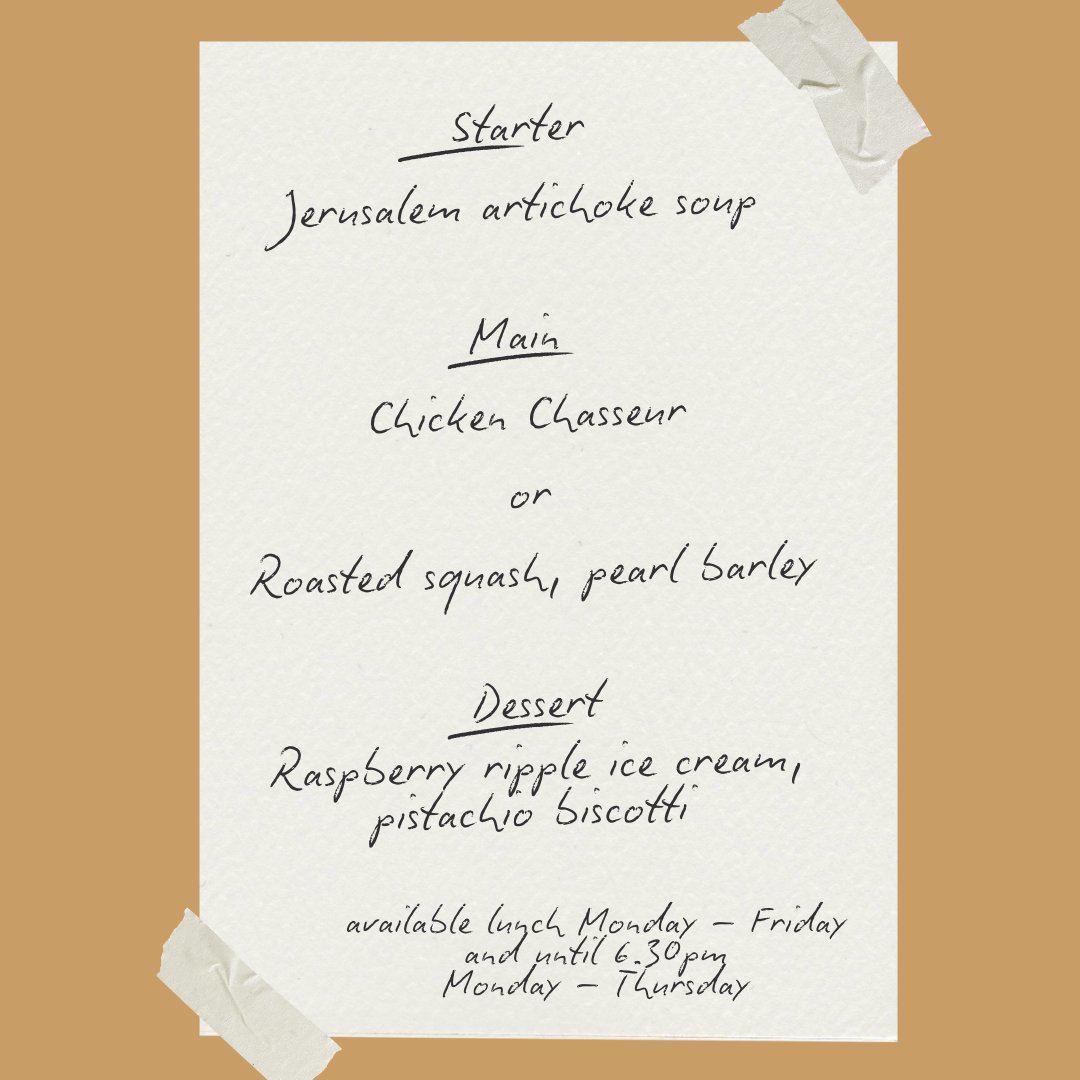 Starter
Jerusalem artichoke soup
Main
Chicken Chasseur
or
Roasted squash, pearl barley
Dessert
Raspberry ripple ice cream,
pistachio biscotti
available lunch Monday – Friday
and until 6.30pm
Monday – Thursday